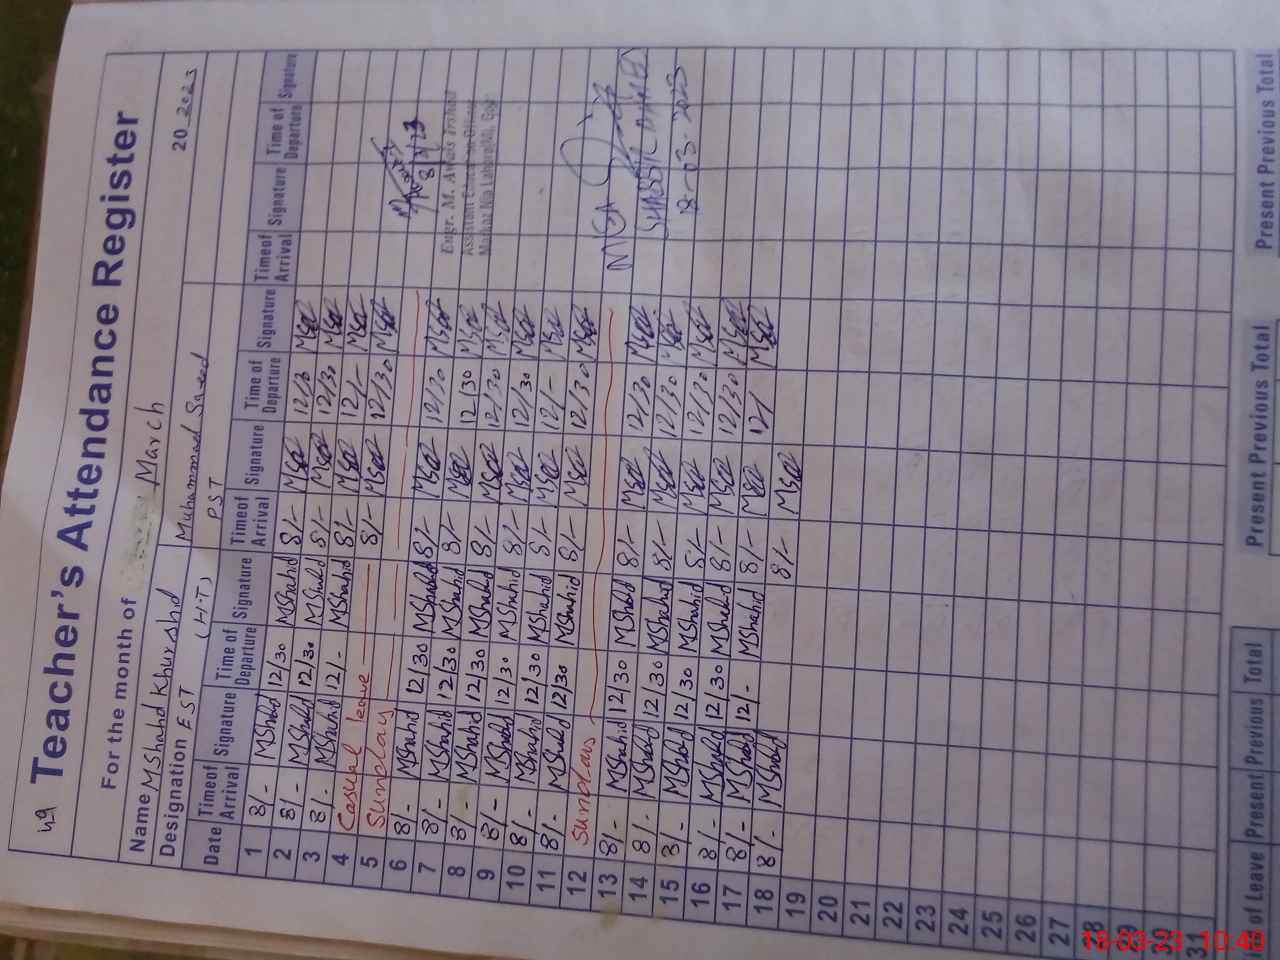 49 Teacher's Attendance Register
For the month of March 20 2023
Name MShahd Khurshid Muhammad Saeed
Designation EST (H.T) PST
Date Timeof Arrival Signature Time of Departure Signature Timeof Arrival Signature Time of Departure Signature Timeof Arrival Signature Time of Departure Signature
1 8/- MShahid 12/30 MShahid 8/- 12/30
2 8/- MShahid 12/30 MShahid 8/- 12/30
3 8/- MShahid 12/- MShahid 8/- 12/-
4 Casual leave 8/- 12/30
5 Sunday
6 8/- MShahid 12/30 MShahid 8/- 12/30
7 8/- MShahid 12/30 MShahid 8/- 12/30
8 8/- MShahid 12/30 MShahid 8/- 12/30
9 8/- MShahid 12/30 MShahid 8/- 12/30
10 8/- MShahid 12/30 MShahid 8/- 12/-
11 8/- MShahid 12/30 MShahid 8/- 12/30
12 Sunday
13 8/- MShahid 12/30 MShahid 8/- 12/30
14 8/- MShahid 12/30 MShahid 8/- 12/30
15 8/- MShahid 12/30 MShahid 8/- 12/30
16 8/- MShahid 12/30 MShahid 8/- 12/30
17 8/- MShahid 12/- MShahid 8/- 12/
18 8/- MShahid 8/-
19
20
21
22
23
24
25
26
27
28
29
30
31
8/3/23
Engr. M. Awais Irshad
Assistant Education Officer
MEA
SHABBIR AHMED
18-03-2023
of Leave Present Previous Total
Present Previous Total
Present Previous Total
18-03-23 10:40